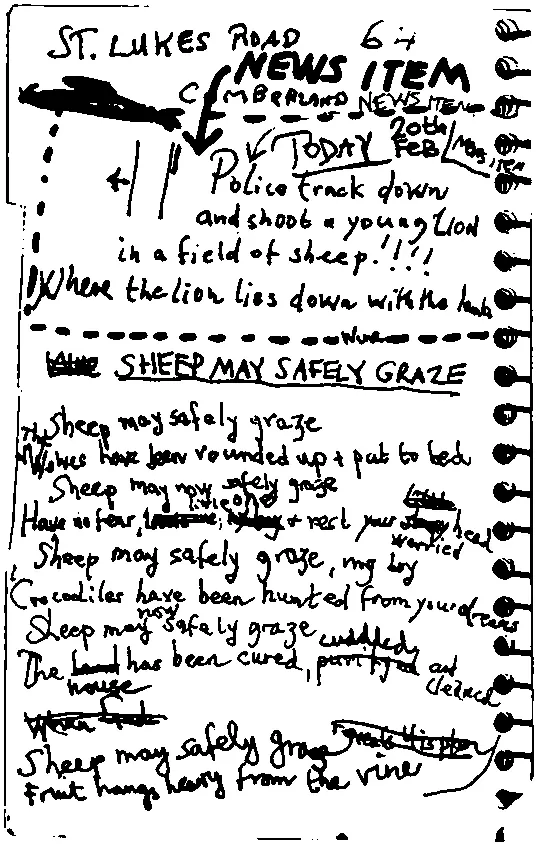 ST. LUKES ROAD 64
NEWS ITEM
CUMBERLAND NEWS ITEM
TODAY 20th FEB NEWS ITEM
Police track down
and shoot a young LION
in a field of sheep!!!!
Where the lion lies down with the lamb
SHEEP MAY SAFELY GRAZE
Sheep may safely graze
The Wolves have been rounded up + put to bed
Sheep may now safely graze
Have no fear, little one, + rest your worried head
Sheep may safely graze, my boy
Crocodiles have been hunted from your dreams
Sheep may now safely graze
The house has been cured, purified and cleaned
Sheep may safely graze
Fruit hangs heavy from the vine